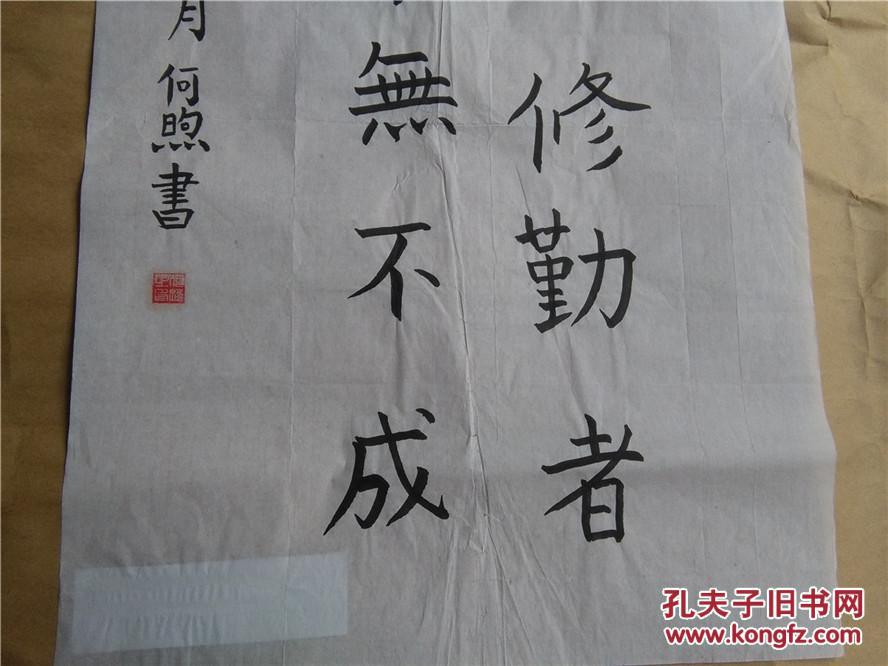 修勤者
無不成
月何煦書
孔夫子旧书网
www.kongfz.com